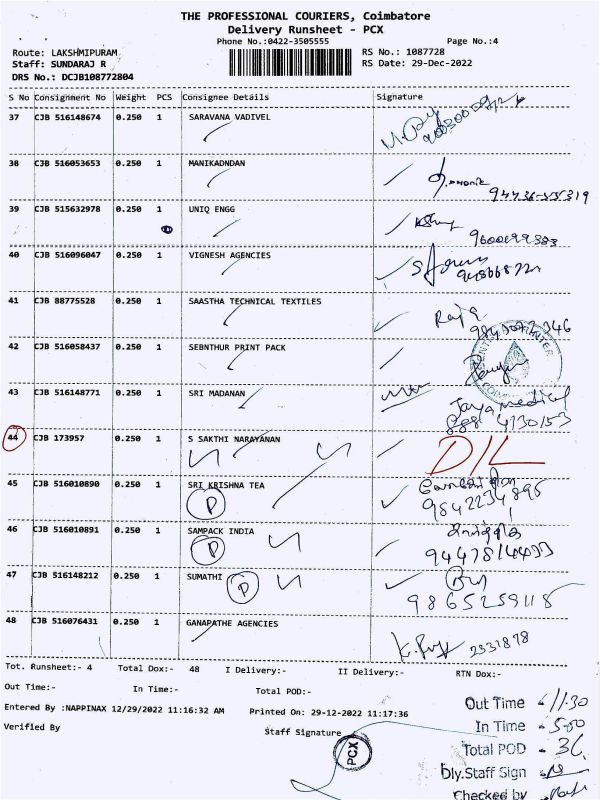 THE PROFESSIONAL COURIERS, Coimbatore
Delivery Runsheet - PCX
Phone No.:0422-3505555 Page No.:4
Route: LAKSHMIPURAM RS No.: 1087728
Staff: SUNDARAJ R RS Date: 29-Dec-2022
DRS No.: DCJB108772804
S No Consignment No Weight PCS Consignee Details Signature
37 CJB 516148674 0.250 1 SARAVANA VADIVEL
38 CJB 516053653 0.250 1 MANIKADNDAN
39 CJB 515632978 0.250 1 UNIQ ENGG
40 CJB 516096047 0.250 1 VIGNESH AGENCIES
41 CJB 88775528 0.250 1 SAASTHA TECHNICAL TEXTILES
Raja
42 CJB 516058437 0.250 1 SEBNTHUR PRINT PACK
43 CJB 516148771 0.250 1 SRI MADANAN
Jaya medical
4130153
44 CJB 173957 0.250 1 S SAKTHI NARAYANAN D/L
45 CJB 516010890 0.250 1 SRI KRISHNA TEA
P 9842234895
46 CJB 516010891 0.250 1 SAMPACK INDIA
P
47 CJB 516148212 0.250 1 SUMATHI P
9865259118
48 CJB 516076431 0.250 1 GANAPATHE AGENCIES
2331878
Tot. Runsheet:- 4 Total Dox:- 48 I Delivery:- II Delivery:- RTN Dox:-
Out Time:- In Time:- Total POD:-
Entered By :NAPPINAX 12/29/2022 11:16:32 AM Printed On: 29-12-2022 11:17:36
Verified By Staff Signature
PCX
Out Time - 11.30
In Time - 5.00
Total POD - 36
Dly.Staff Sign
Checked by